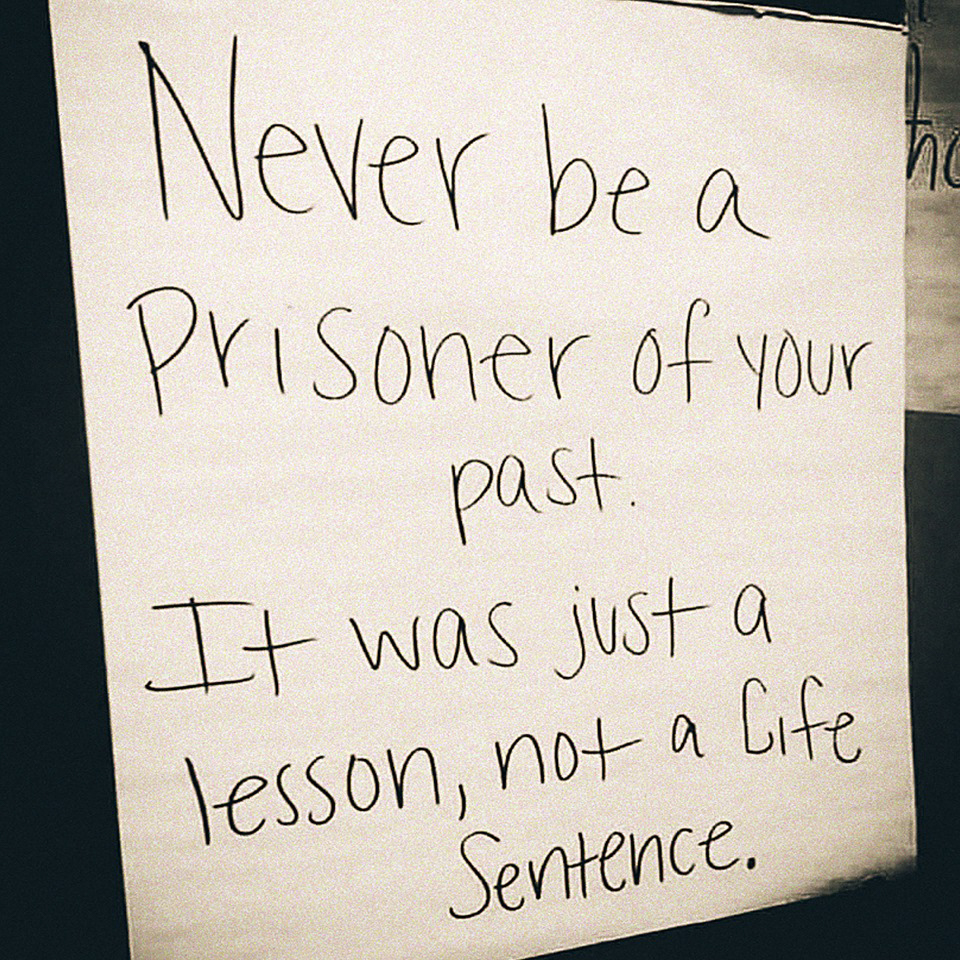 Never be a
Prisoner of your
past.
It was just a
lesson, not a life
Sentence.